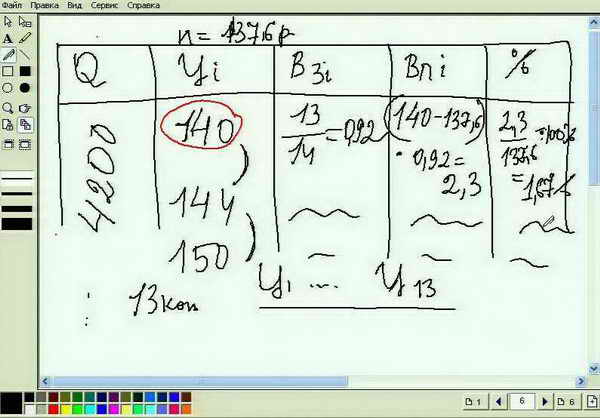 Файл Правка Вид Сервис Справка
n = 137,6 р
Q Yi Bзi Bпi %
4200
140 13/14 = 0,92 (140-137,6)
· 0,92 =
2,3
2,3/137,6 · 100%
= 1,67%
144
150
13 коп
Y1 .... Y13
1 6 6